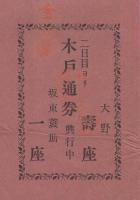 大野
壽座
二日目ヨリ
木戸通券
興行中
坂東蓑助
一座